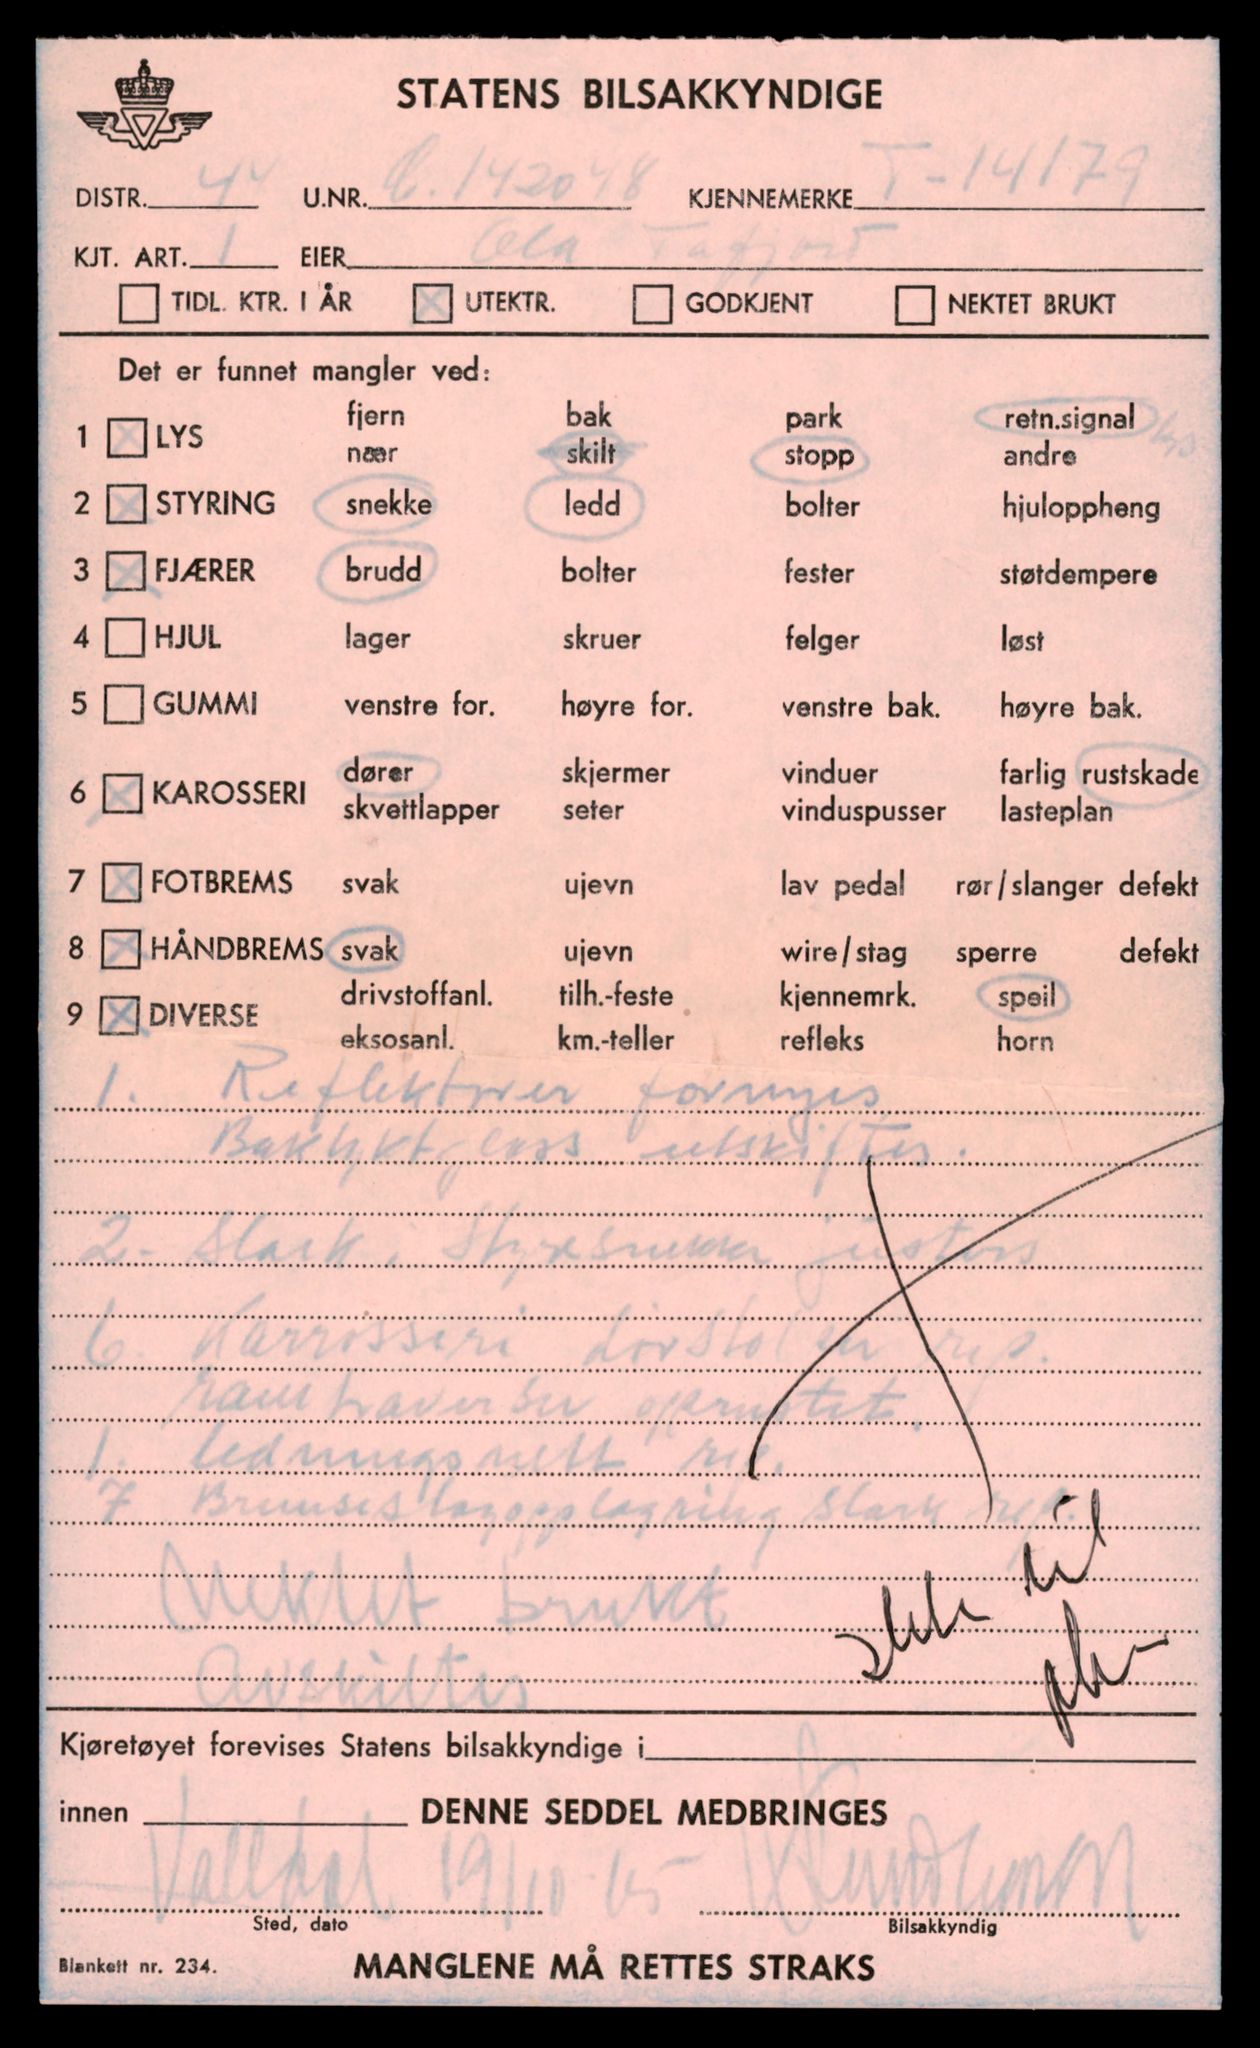 STATENS BILSAKKYNDIGE
DISTR. 44 U.NR. C.142048 KJENNEMERKE T-14179
KJT. ART. 1 EIER Ola Tafjord
TIDL. KTR. I ÅR X UTEKTR. GODKJENT NEKTET BRUKT
Det er funnet mangler ved:
fjern bak park retn.signal
1 X LYS
nær skilt stopp andre
2 X STYRING snekke ledd bolter hjuloppheng
3 X FJÆRER brudd bolter fester støtdempere
4 HJUL lager skruer felger løst
5 GUMMI venstre for. høyre for. venstre bak. høyre bak.
dører skjermer vinduer farlig rustskade
6 X KAROSSERI
skvettlapper seter vinduspusser lasteplan
7 X FOTBREMS svak ujevn lav pedal rør/slanger defekt
8 X HÅNDBREMS svak ujevn wire/stag sperre defekt
drivstoffanl. tilh.-feste kjennemrk. speil
9 X DIVERSE
eksosanl. km.-teller refleks horn
1. Reflektorer fornyes
Baklyktglass utskiftes.
2- Slark i Styresnekke justeres
6. Karrosseri dørstolper rep.
ramtraverser opprustet.
1. ledningsnett rep.
7 slark rep.
Nektet brukt
Avskiltes
til
Kjøretøyet forevises Statens bilsakkyndige i
innen DENNE SEDDEL MEDBRINGES
Valldal 19/10-65
Sted, dato Bilsakkyndig
Blankett nr. 234. MANGLENE MÅ RETTES STRAKS